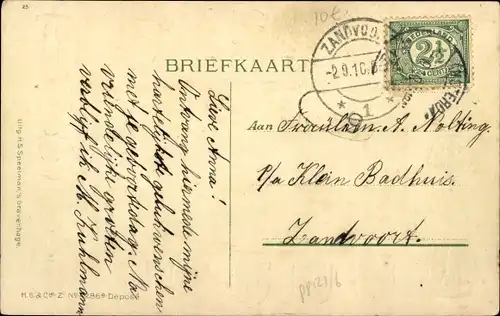 25
10€
ZANDVOO
-2.9.10.
1
NEDERLAND
2½
CENT
BRIEFKAART
Aan Fräulein A. Nolting.
p/a Klein Badhuis.
Zandvoort.
Lieve Anna!
Ontvang hiermede mijne
hartelijkste gelukwenschen
met je geboortedag. Na
vriendelijke groeten
verblijf ik M. Kuhlmann
Uitg. H.S. Speelman, 's Gravenhage.
H.S.&Co.Z. No. 286 Deposé
pp123/6